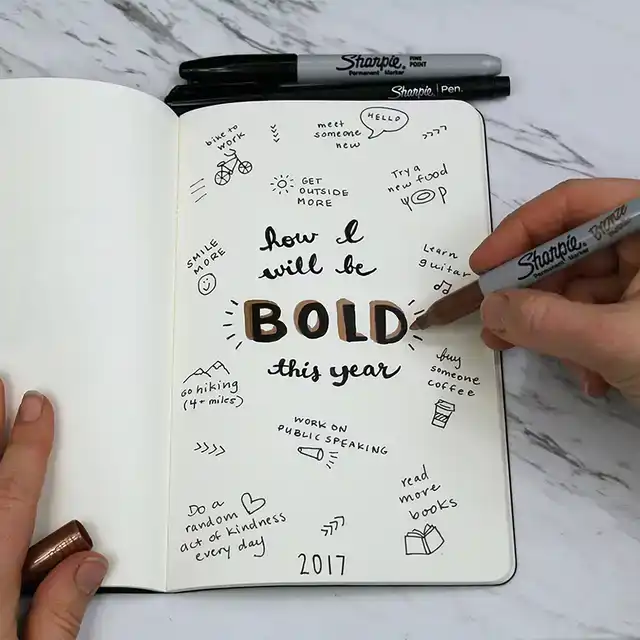 Sharpie. FINE POINT
Permanent Marker
Sharpie | Pen.
bike to
work
meet
someone
new
HELLO
GET
OUTSIDE
MORE
Try a
new food
SMILE
MORE
how I
will be
BOLD
this year
Learn
guitar
Sharpie Bronze
Permanent Marker
go hiking
(4+ miles)
buy
someone
coffee
WORK ON
PUBLIC SPEAKING
Do a
random
act of kindness
every day
read
more
books
2017